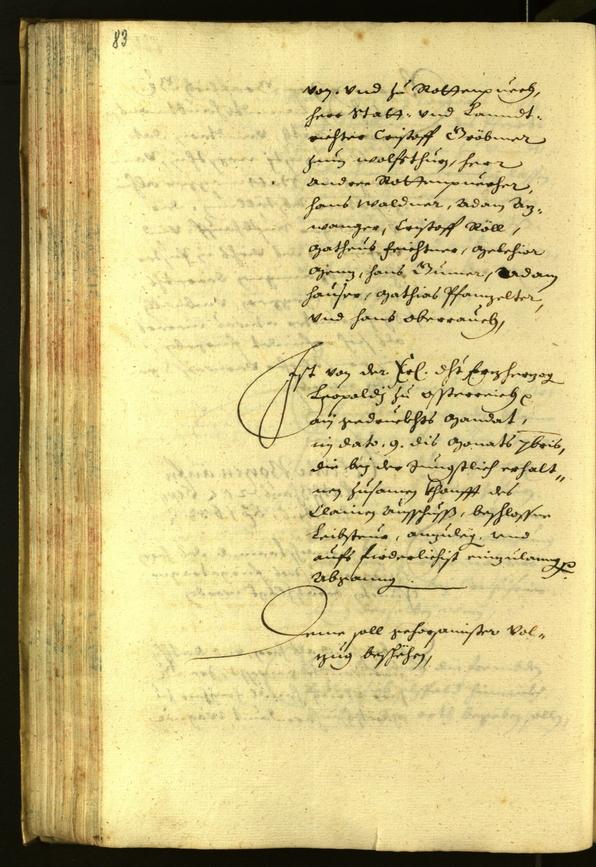 83
von. vnd zu Rottenpuech,
herr Statt- vnd Lanndt-
richter Cristoff Gröbmer
zum wolfsthurn, herr
Andree Rottenpuecher,
hans Waldner, Adam An-
wanger, Cristoff Röll,
Matheus Feichtner, Melchior
hans Adam
hauser, Mathias Pfanzelter,
vnd hans oberrauch,
Ist von der. Erl. dht Erzherzog
Leopoldj zu Össterreich
ain gedruckhts Mandat,
in dato. 9. dis Monats 7bris,
die bej der Jungstlich erhalt-
nen zusamen khonfft des
Clainen ausschuß, beschlossne
Leibsteur, anzulegen vnd
aufs firderlichist einzulanngen
Abganng
Deme soll gehorsamister Vol-
zug beschehen,